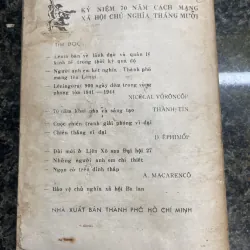 KỶ NIỆM 70 NĂM CÁCH MẠNG
XÃ HỘI CHỦ NGHĨA THÁNG MƯỜI
TÌM ĐỌC
— Lênin bàn về lãnh đạo và quản lý
kinh tế trong thời kỳ quá độ
— Người anh em kết nghĩa. Thành phố
mang tên Lênin
— Lêningrat 900 ngày đêm trong vòng
phong tỏa 1941 — 1944
NICÔLAI VÔRÔNCỐP
— Từ cảm khái phá và sáng tạo
THÀNH TÍN
— Cuộc chiến tranh giải phóng vĩ đại
— Chiến thắng vĩ đại
Đ. ÉPHIMỐP
— Đổi mới ở Liên Xô sau Đại hội 27
— Những người anh em chí thiết
— Ngọn cờ trên đỉnh tháp
A. MACARENCÔ
— Bảo vệ chủ nghĩa xã hội Ba Lan
NHÀ XUẤT BẢN THÀNH PHỐ HỒ CHÍ MINH